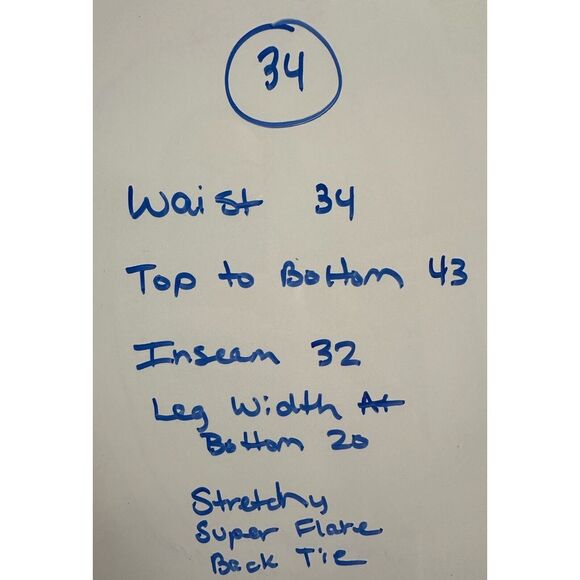 34
Waist 34
Top to Bottom 43
Inseam 32
Leg Width At
Bottom 20
Stretchy
Super Flare
Back Tie